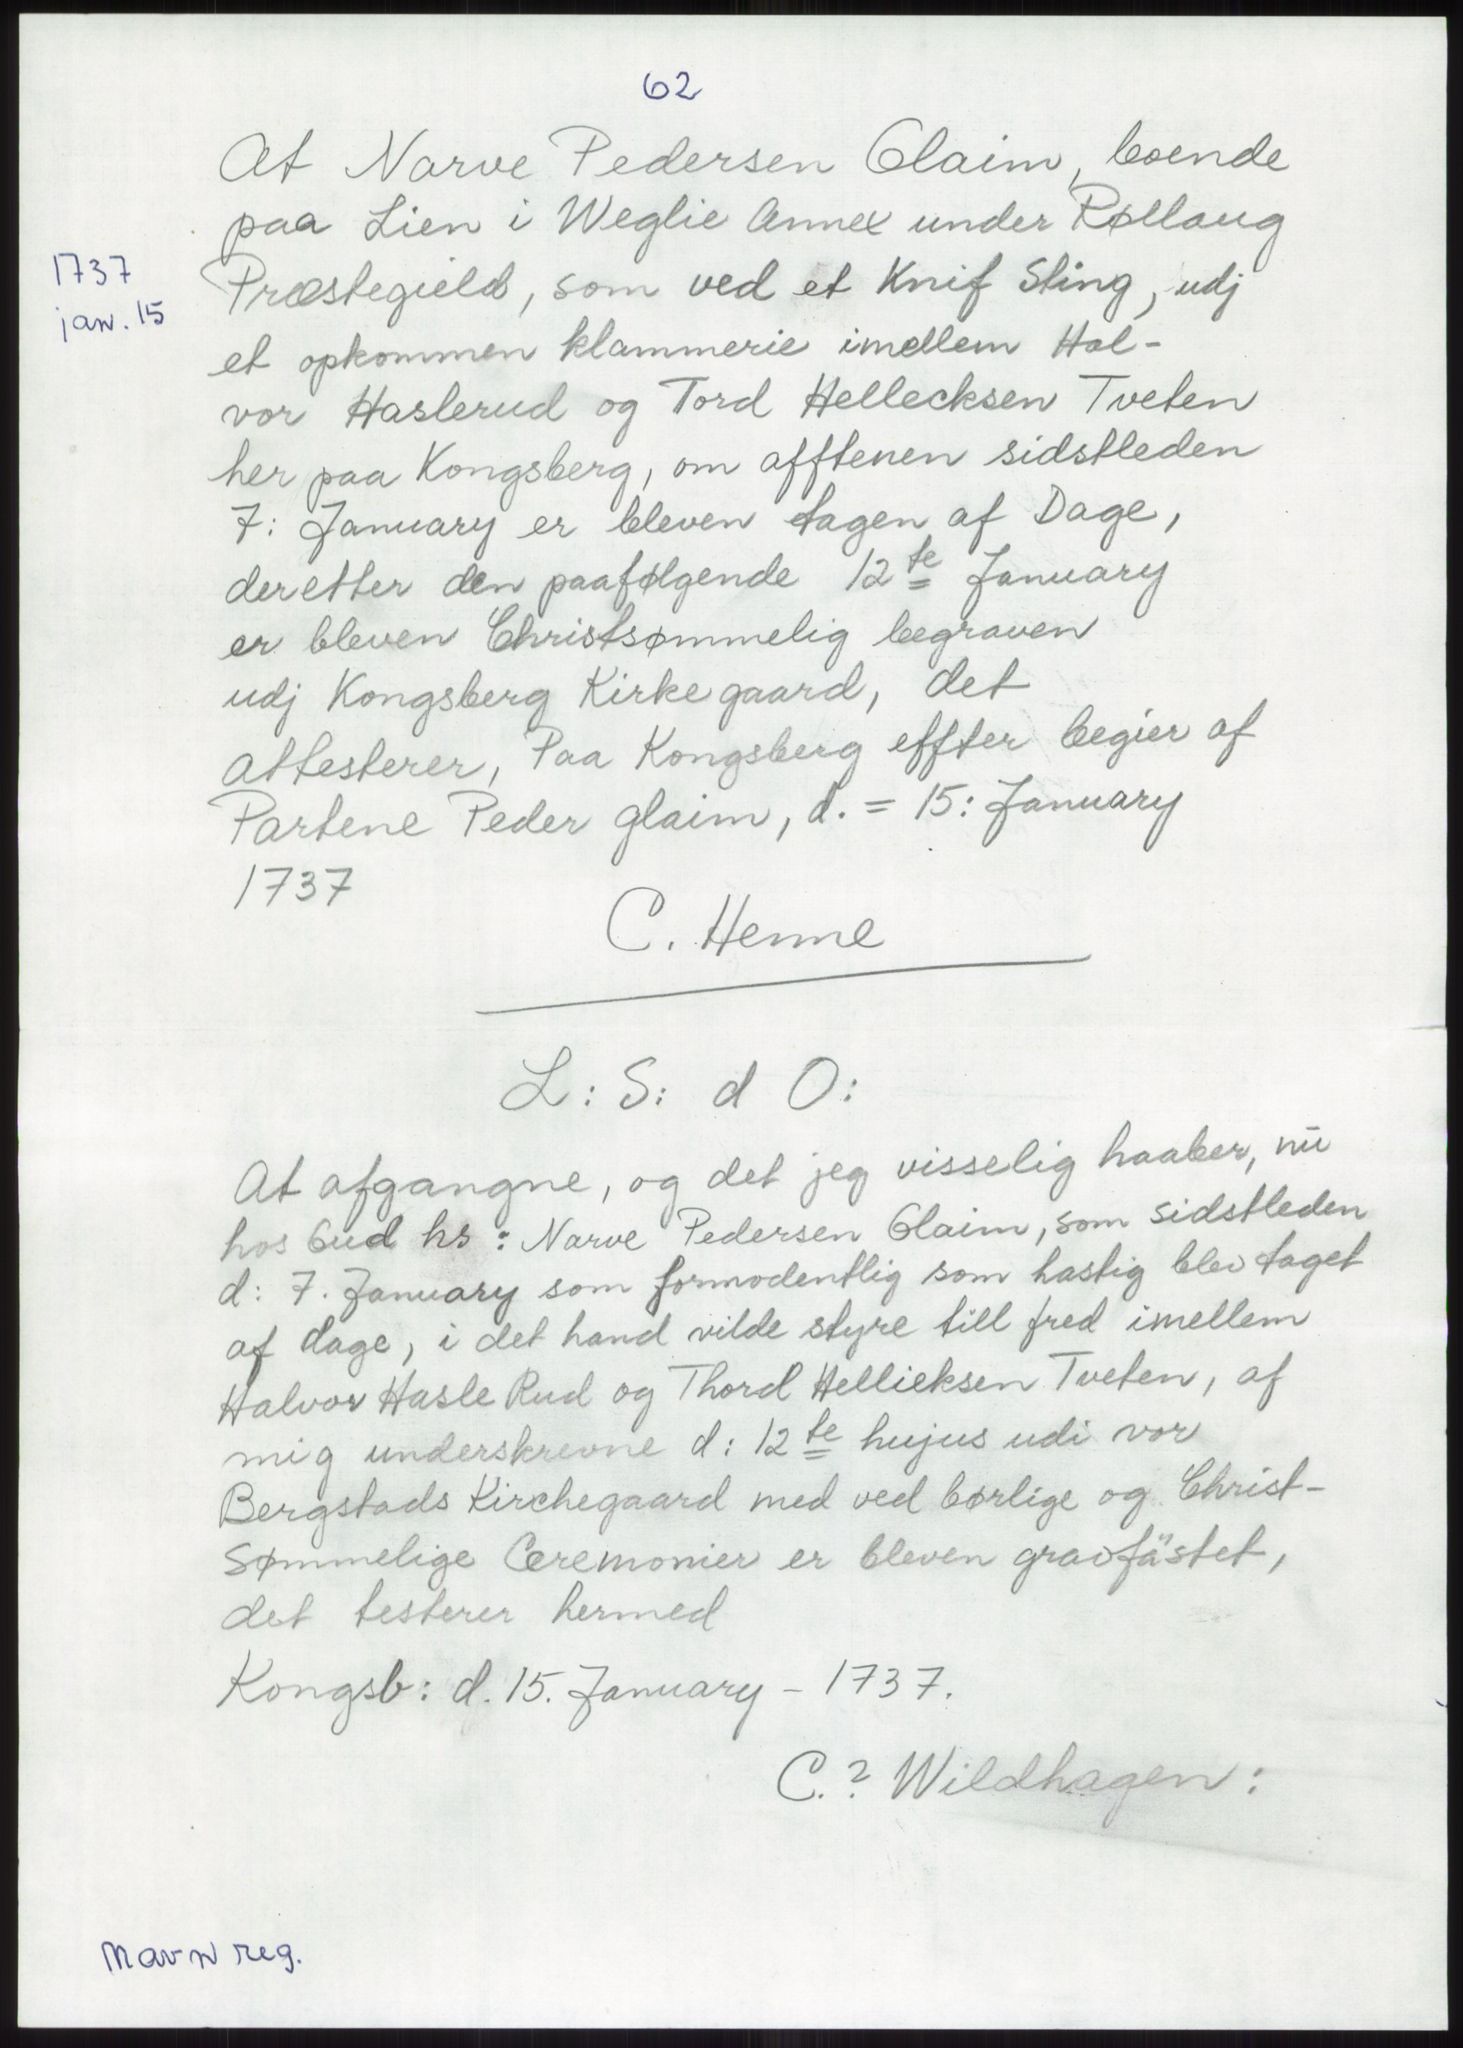 62
At Narve Pedersen Glaim, boende
paa Lien i Weglie Annex under Røllaug
1737
jan. 15
Præstegield, som ved et Knif Sting, udj
et opkommen klammerie imellem Hal-
vor Haslerud og Tord Hellecksen Tveten
her paa Kongsberg, om afftenen sidstleden
7: January er bleven tagen af Dage,
deretter den paafølgende 12te January
er bleven Christsømmelig begraven
udj Kongsberg Kirkegaard, det
attesterer, Paa Kongsberg effter begier af
Partene Peder glaim, d. = 15: January
1737
C. Henne
L: S: d O:
At afgangne, og det jeg visselig haaber, nū
hos Gud hs: Narve Pedersen Glaim, som sidstleden
d: 7. January som formodentlig som hastig blev taget
af dage, i det hand vilde styre till fred imellem
Halvor Hasle Rud og Thord Hellieksen Tveten, af
mig underskrevne d: 12te hujus udi vor
Bergstads Kirchegaard med ved børlige og Christ-
sømmelige Ceremonier er bleven gravfästet,
det testerer hermed
Kongsb: d. 15. January - 1737.
C.? Wildhagen:
Navn reg.